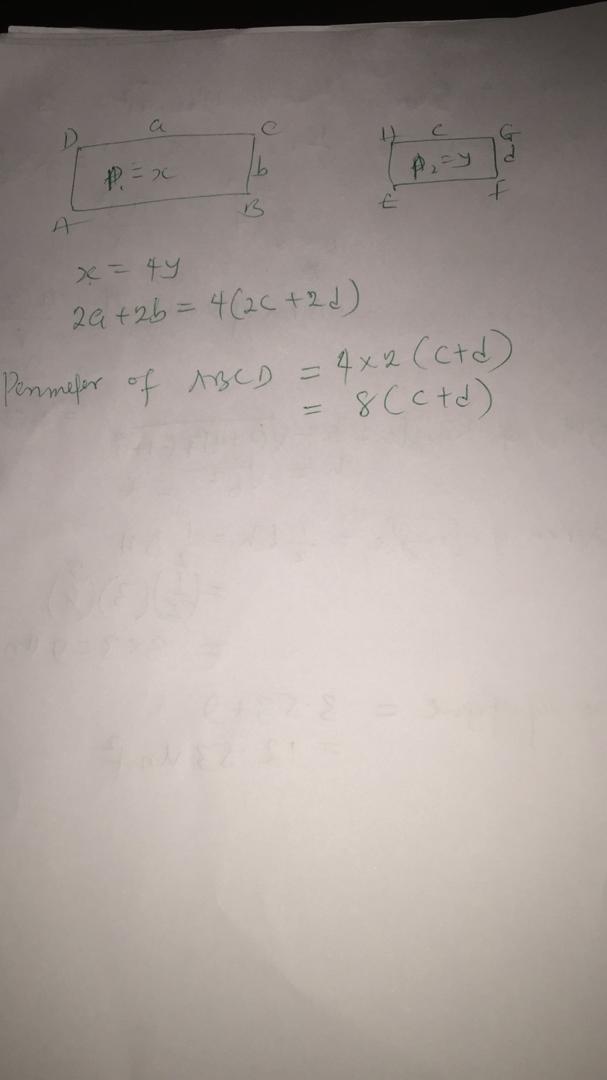 D a C
P₁ = x b
A B
H c G
P₂ = y d
E F
x = 4y
2a + 2b = 4(2c + 2d)
Perimeter of ABCD = 4 × 2 (c + d)
= 8 (c + d)